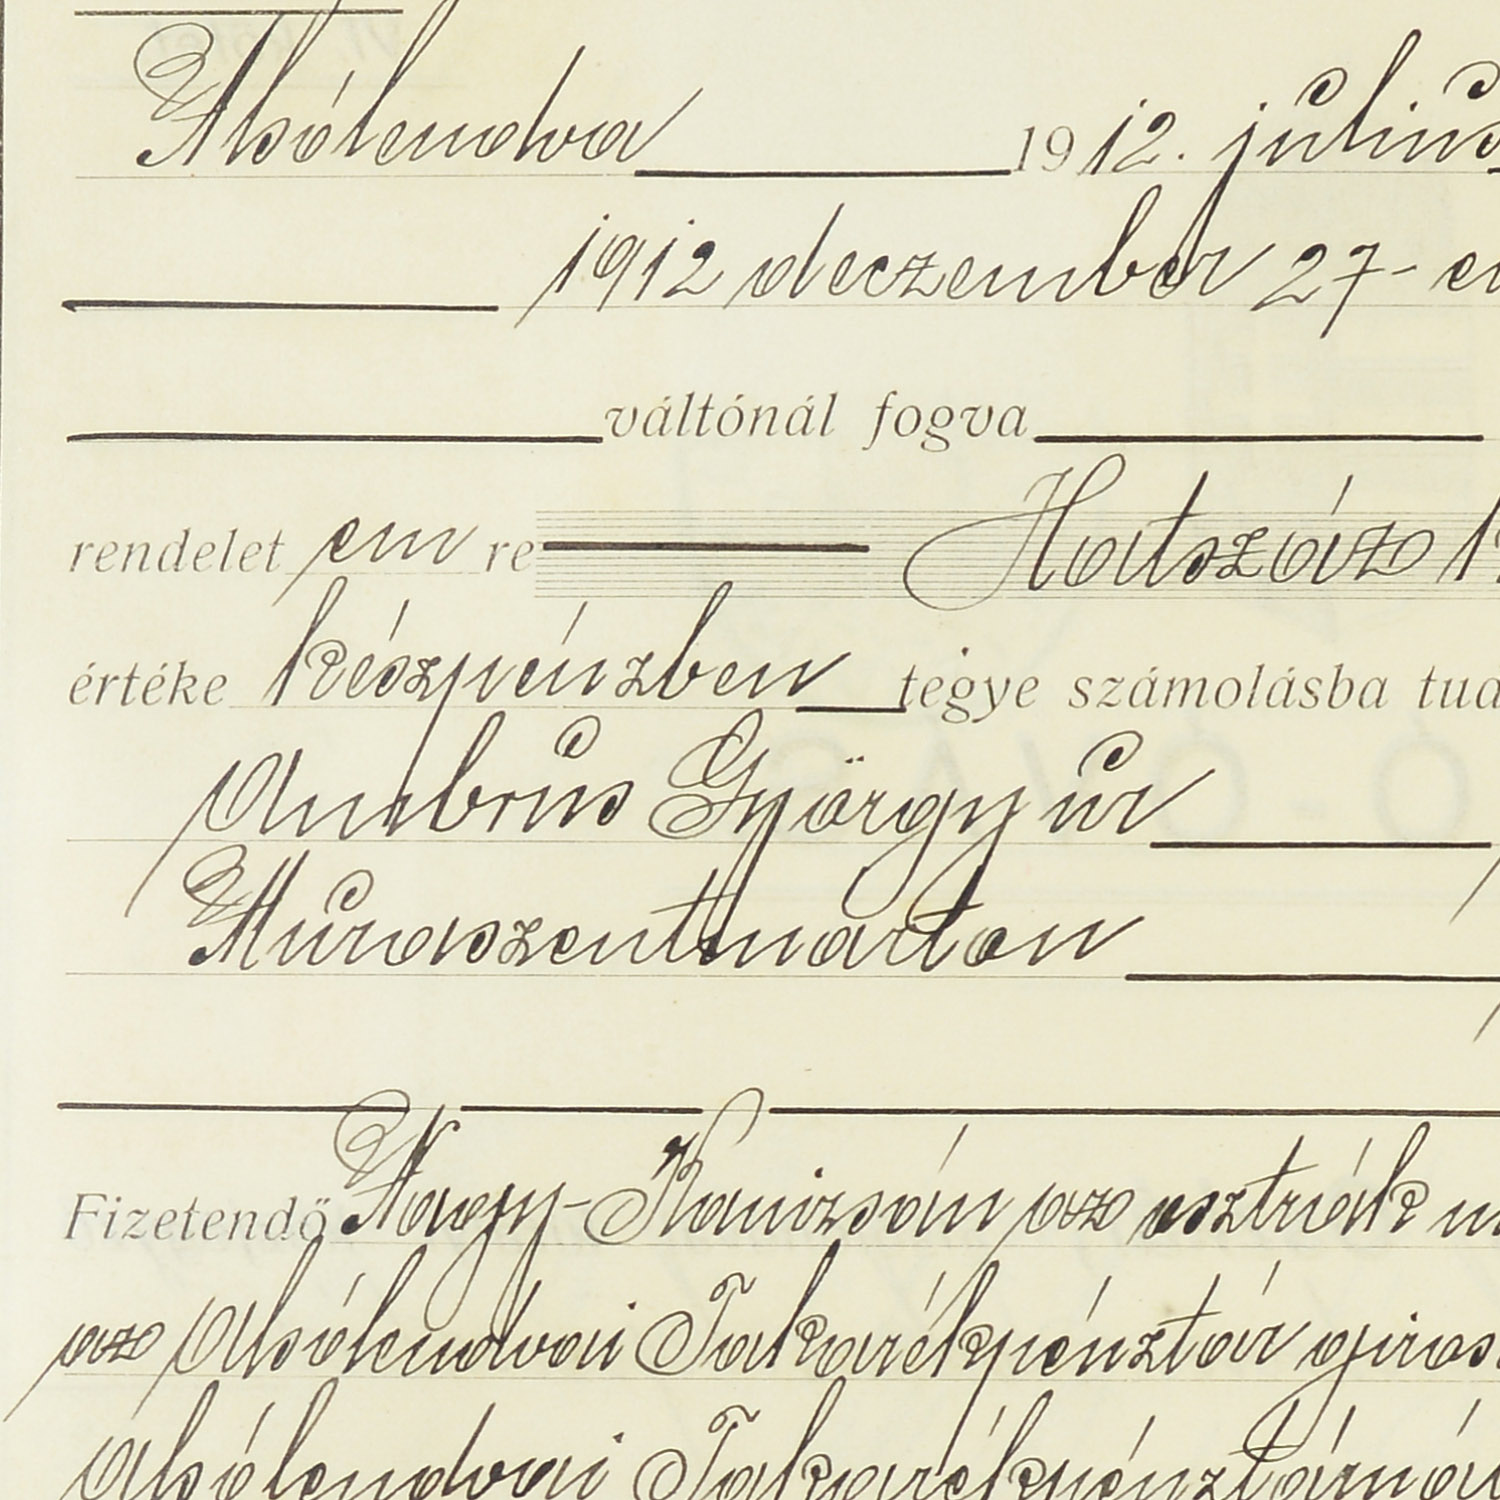 Alsólendva 1912. julius
1912 deczember 27-
váltónál fogva
rendelet em re Hatszáz
értéke készpénzben tegye számolásba
Ambrus György ur
Muraszentmarton
Fizetendő Nagy-Kanizsán az osztrák
az Alsólendvai Takarékpénztár
Alsólendvai Takarékpénztárná